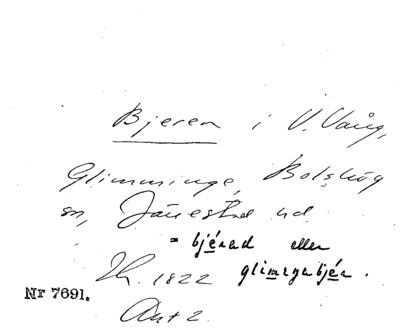 Bjeren i V. Vång,
Glimminge, Bolshög
sn, Järrestad hd.
= bjérad eller
1822 glimmyabjér.
Nr 7691.
Akt 2.